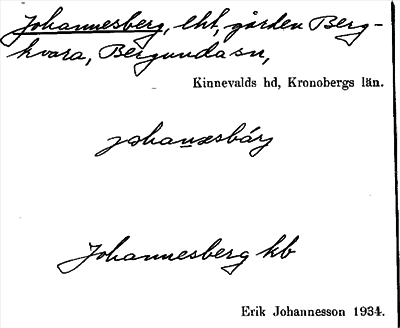 Johannesberg, lht, gården Berg-
kvara, Bergunda sn,
Kinnevalds hd, Kronobergs län.
Johannesberg kb
Erik Johannesson 1934.